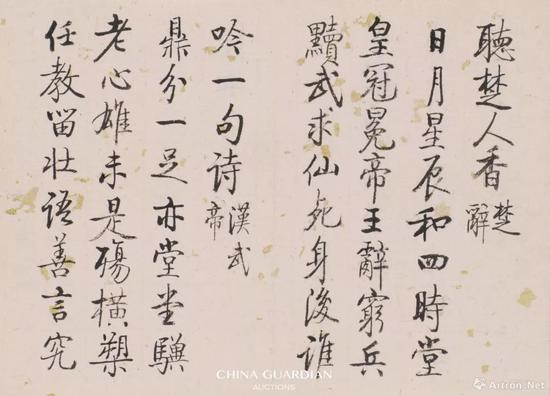 聽楚人香 楚辭
日月星辰和四時堂
皇冠冕帝王辭窮兵
黷武求仙死身後誰
吟一句詩 漢武帝
鼎分一足亦堂堂驥
老心雄未是殤橫槊
任教留壯語善言究
CHINA GUARDIAN
AUCTIONS
Artron.Net